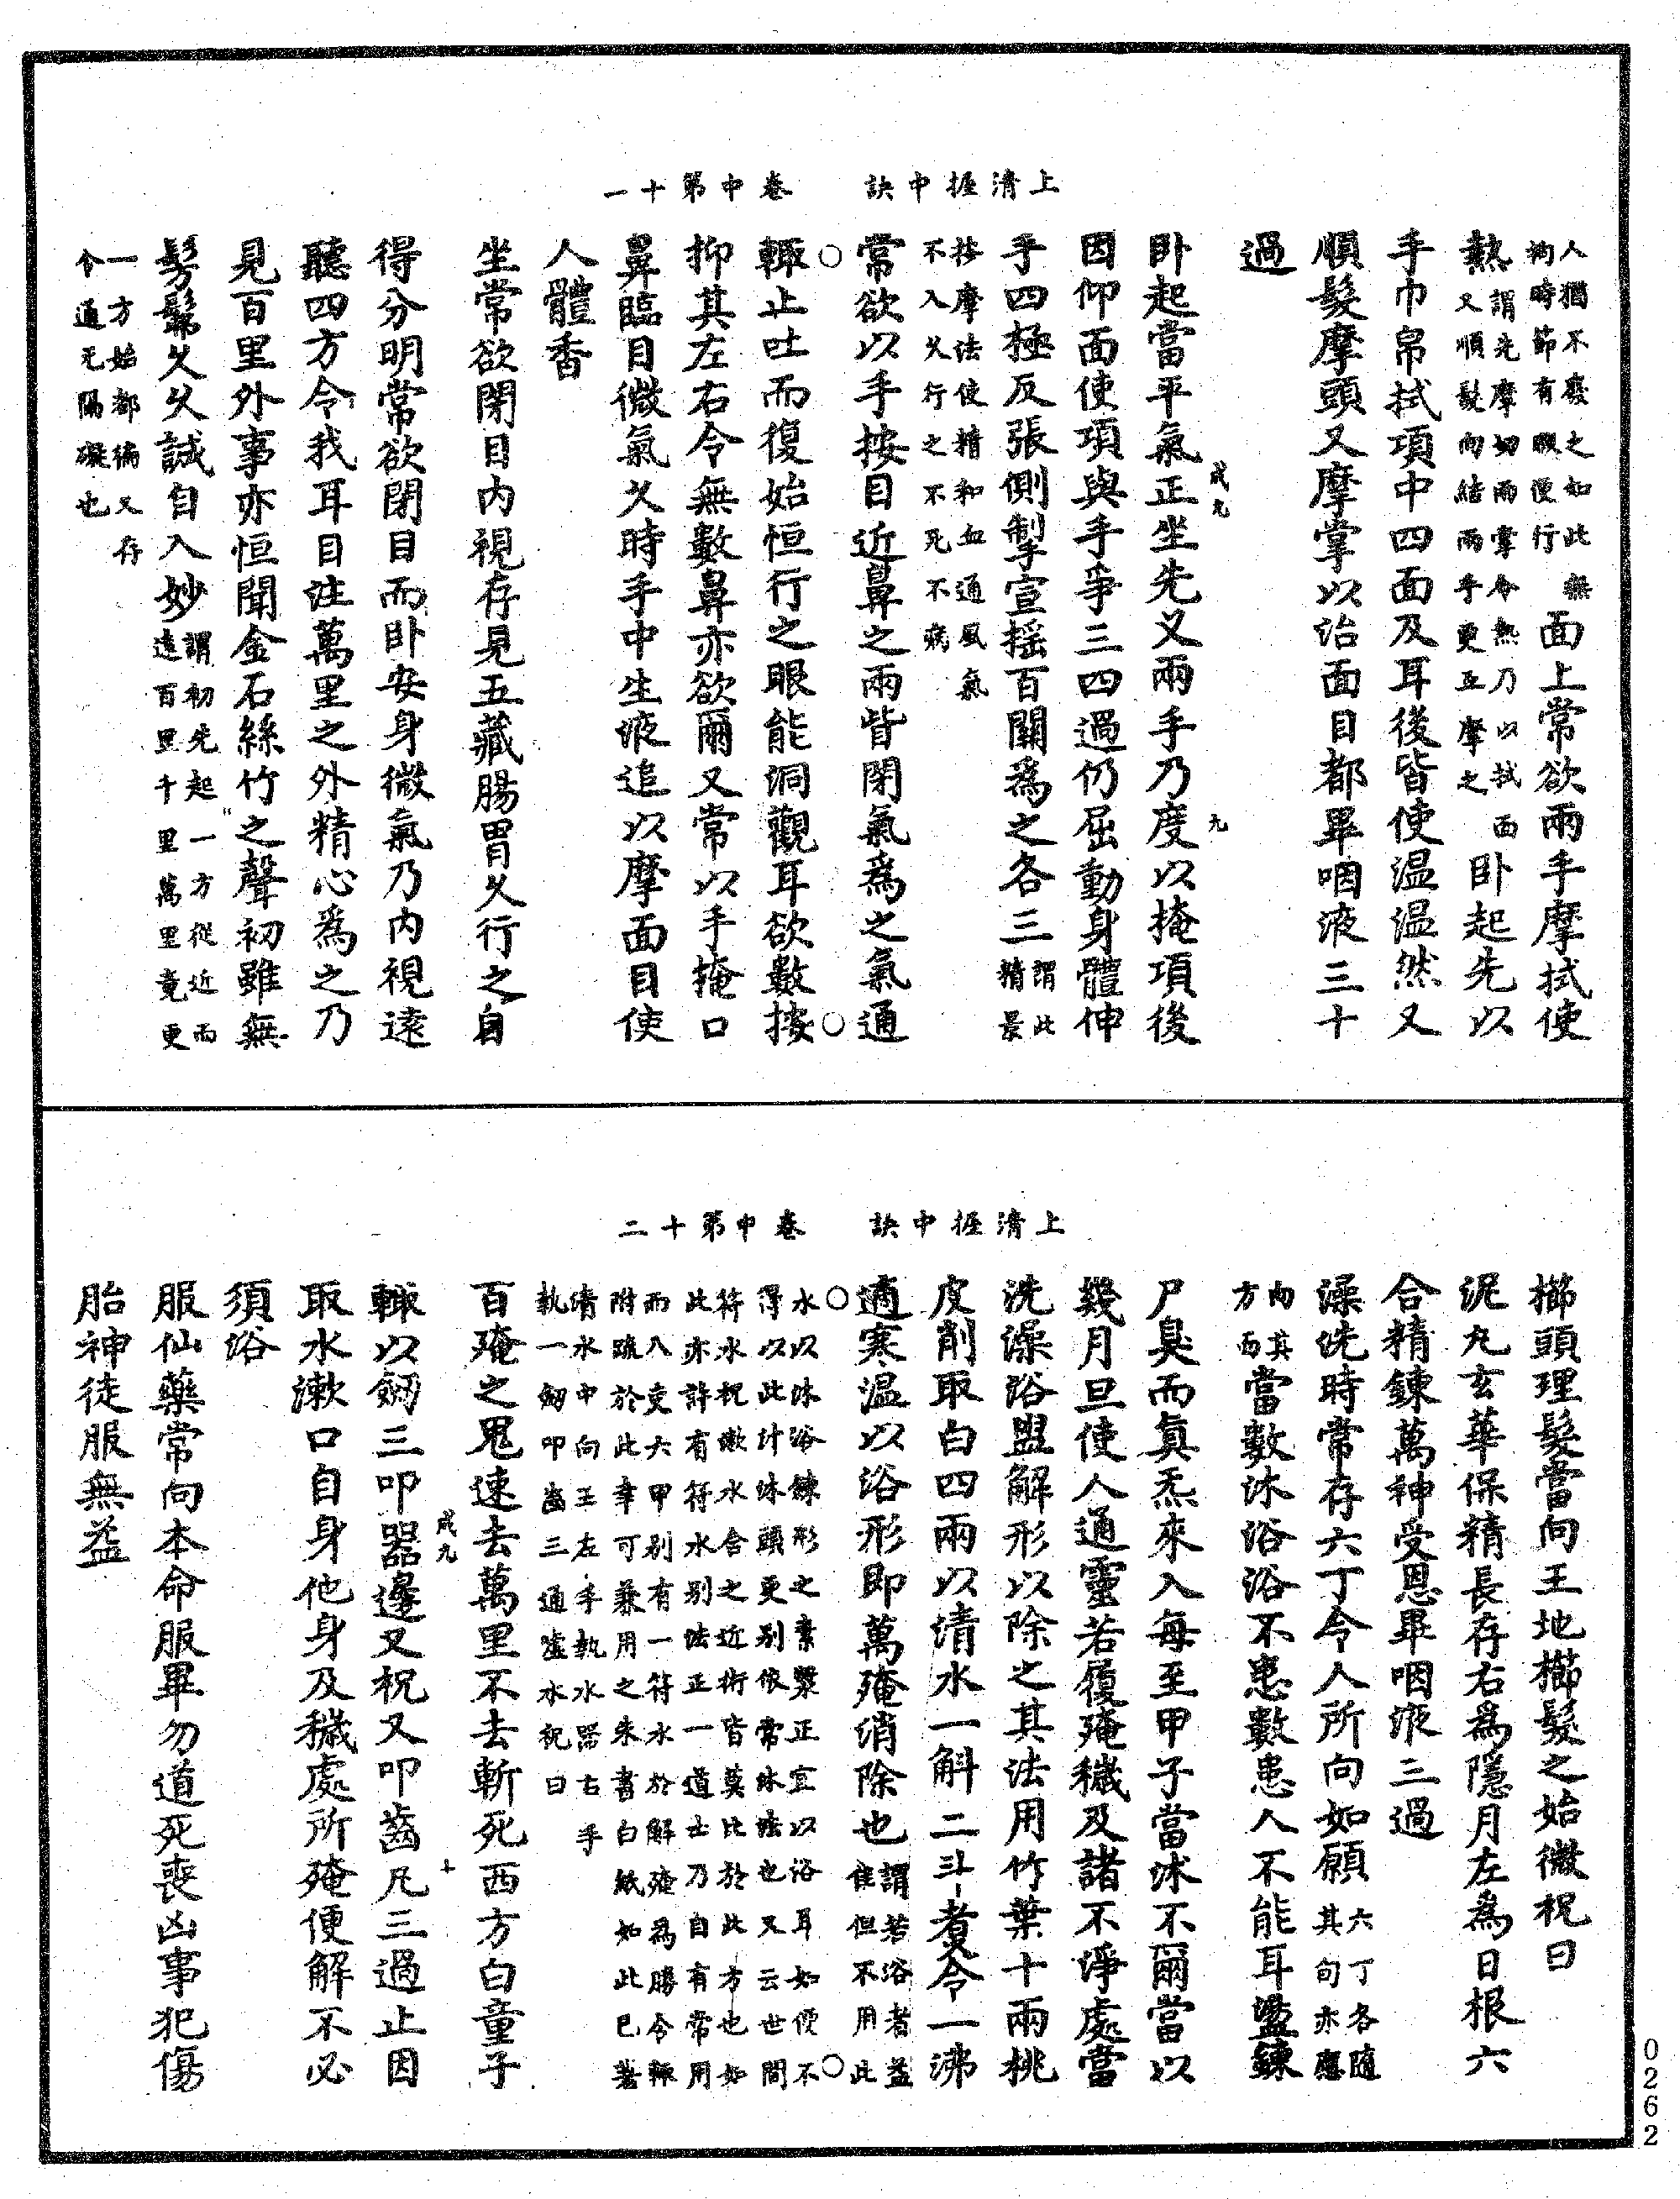 上清握中訣　卷中第十一
人猶不廢之如此無
拘時節有暇便行面上常欲兩手摩拭使
熱謂先摩切兩掌令熱乃以拭面
又順髮向結兩手更互摩之卧起先以
手巾帛拭項中四面及耳後皆使温温然又
順髮摩頭又摩掌以治面目都畢咽液三十
過
卧起當平氣正坐先叉兩手乃度以掩項後
因仰面使項與手爭三四過仍屈動身體伸
手四極反張側掣宣摇百關爲之各三謂此
精景
按摩法使精和血通風氣
不入久行之不死不病
常欲以手按目近鼻之兩眥閉氣爲之氣通
輒止吐而復始恒行之眼能洞觀耳欲數按
抑其左右令無數鼻亦欲爾又常以手掩口
鼻臨目微氣久時手中生液追以摩面目使
人體香
坐常欲閉目内視存見五藏腸胃久行之自
得分明常欲閉目而卧安身微氣乃内視遠
聽四方令我耳目注萬里之外精心爲之乃
見百里外事亦恒聞金石絲竹之聲初雖無
髣髴久久誠自入妙謂初先起一方從近而
遠百里千里萬里竟更
一方始都徧又存
令通无隔礙也
成九
九
上清握中訣　卷中第十二
櫛頭理髮當向王地櫛髮之始微祝曰
泥丸玄華保精長存右爲隱月左爲日根六
合精鍊萬神受恩畢咽液三過
澡洗時常存六丁令人所向如願六丁各隨
其旬亦應
向其
方面當數沐浴浴不患數患人不能耳盪鍊
尸臭而真炁來入每至甲子當沐不爾當以
幾月旦使人通靈若履殗穢及諸不淨處當
洗澡浴盥解形以除之其法用竹葉十兩桃
皮削取白四兩以清水一斛二斗煮令一沸
適寒温以浴形即萬殗消除也謂若浴者益
佳但不用此
水以沐浴鍊形之素槩正宜以浴耳如便不
得以此汁沐頭更别依常沐法也又云世間
符水祝漱水合之近術皆莫比於此方也如
此亦許有符水别法正一道士乃自有常用
而入支六甲别有一符水於解殗爲勝令輒
附疏於此幸可兼用之朱書白紙如此已著
清水中向王左手執水器右手
執一劒叩齒三通噓水祝曰
百殗之鬼速去萬里不去斬死西方白童子
輒以劒三叩器邊又祝又叩齒凡三過止因
取水漱口自身他身及穢處所殗便解不必
須浴
服仙藥常向本命服畢勿道死喪凶事犯傷
胎神徒服無益
成九
十
0262